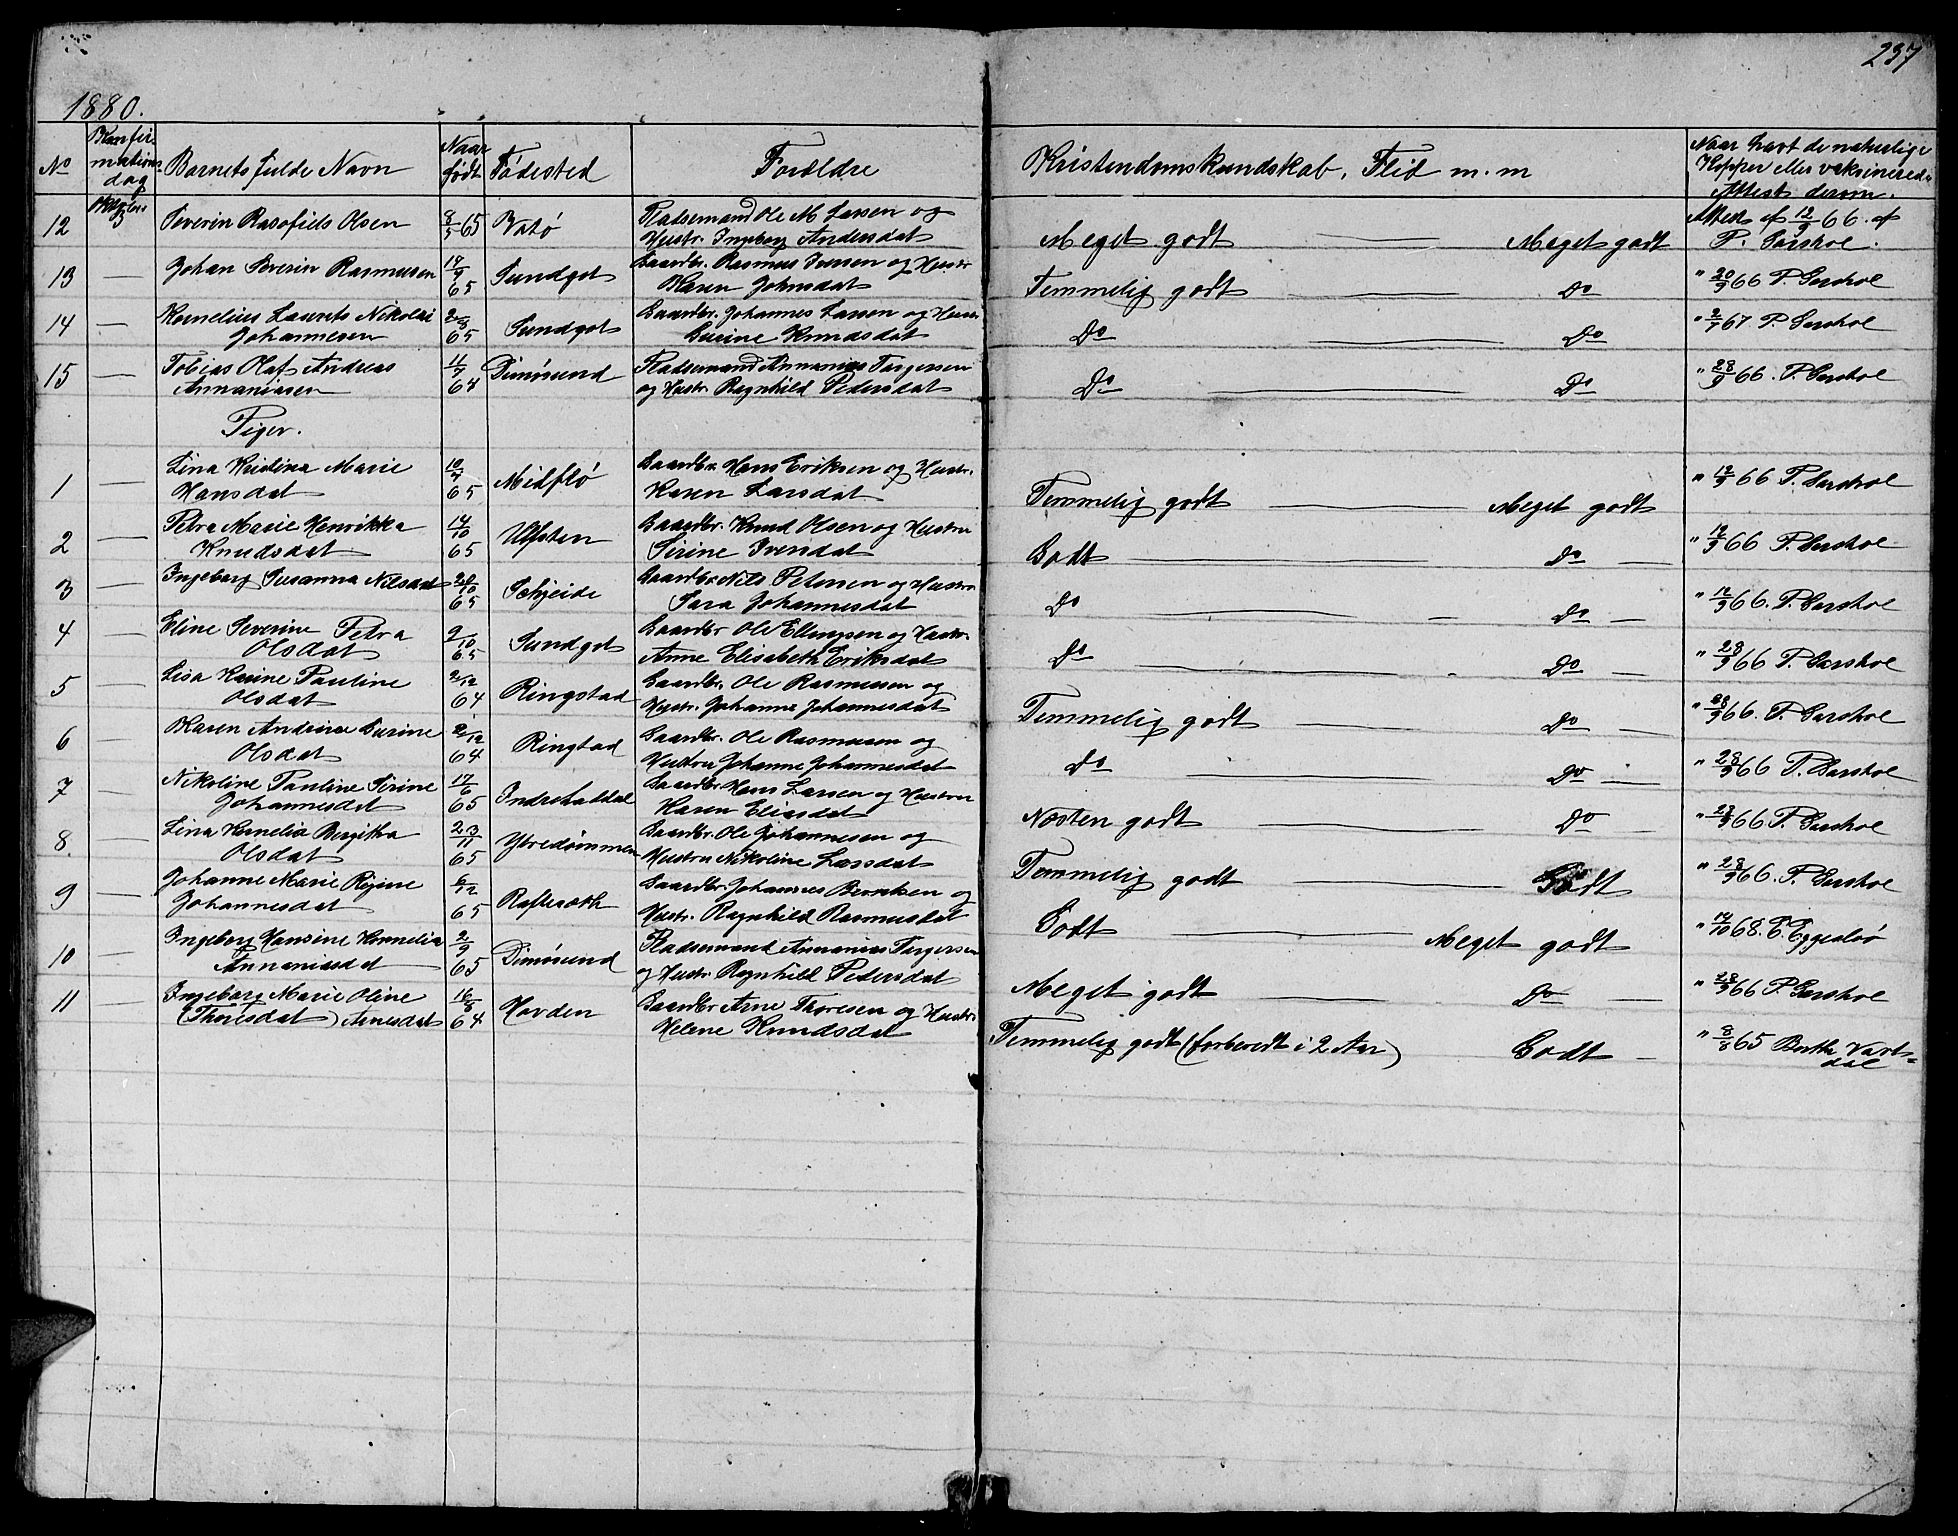 237
1880.
No
Konfir
mations
dag
Barnets fulde Navn
Naar
født
Fødested
Forældre
Kristendomskundskab, Flid m. m
Naar havt de naturlige
Kopper eller vaksinerede
Attest derom.
12 Severin Olsen 8/5 65 Vatø Pladsemand Ole M Larsen og
Hustr. Ingeborg Andersdat Meget godt Meget godt Attest af 12/9 66. af
P. Garshol.
13 — Johan Severin Rasmussen 17/9 65 Sundgot Gaardbr. Rasmus Iversen og Hustr
Karen Johnsdat Temmelig godt Do " 20/9 66 P. Garshol
14 — Kornelius Laurits Nikolai
Johannesen 65 Sundgot Gaardbr. Johannes Larsen og Hustr
Gurine Knudsdat Do Do " 2/7 67 P. Garshol
15 — Tobias Olaf Andreas
Annaniasen 11/7 64 Dimøsund Pladsemand Annanias Torgersen
og Hustr. Ragnhild Pedersdat Do Do " 28/9 66. P. Garshol
Piger.
1 — Lina Kristina Marie
Hansdat 10/7 65 Midflø Gaardbr. Hans Eriksen og Hustr.
Karen Larsdat Temmelig godt Meget godt " 12/9 66 P. Garshol
2 — Petra Marie Henrikka
Knudsdat 14/10 65 Ulfsten Gaardbr. Knud Olsen og Hustru
Sirine Iversdat Godt Do — " 12/9 66 P. Garshol
3 — Ingeborg Susanna Nilsdat 20/10 65 Schjeide Gaardbr. Nils Petersen og Hustru
Sara Johannesdat Do Do — " 12/9 66. P. Garshol
4 — Eline Severine Petra
Olsdat 9/10 65 Sundgot Gaardbr Ole Ellingsen og Hustr.
Anne Elisabeth Eriksdat Do Do — " 28/9 66 P. Garshol
5 — Lisa Karine Pauline
Olsdat 2/12 64 Ringstad Gaardbr. Ole Rasmussen og
Hustr. Johanne Johannesdat Temmelig godt Do — " 28/9 66. P. Garshol
6 — Karen Andrine Gurine
Olsdat 2/12 64 Ringstad Gaardbr. Ole Rasmussen og
Hustru Johanne Johannesdat Do Do — " 28/9 66 P. Garshol
7 — Nikoline Pauline Sirine
Johannesdat 17/6 65 Indrehaddal Gaardbr. Hans Larsen og Hustru
Karen Eliasdat Næsten godt Do — " 28/9 66 P. Garshol
8. — Lina Kornelia Bergitha
Olsdat 23/11 65 Ytredømmen Gaardbr. Ole Johannesen og
Hustru Nikoline Larsdat Temmelig godt Godt " 28/9 66. P. Garshol
9 — Johanne Marie Regine
Johannesdat 6/12 65 Gaardbr. Johannes Berntsen og
Hustr. Ragnhild Rasmusdat Godt Meget godt " 14/10 68. Eggesbø
10 — Ingeborg Hansine Kornelia
Annaniasdat 2/9 65 Dimøsund Pladsemand Annanias Torgersen
og Hustr. Ragnhild Pedersdat Meget godt Do — " 28/9 66 P. Garshol
11 — Ingeborg Marie Oline
(Thoresdat) Arnesdat 16/8 64 Hovden Gaardbr Arne Thoresen og Hustr.
Helene Knudsdat Temmelig godt (forberedt i 2 Aar) Godt — " 8/8 65 Berthe Varts-
dal